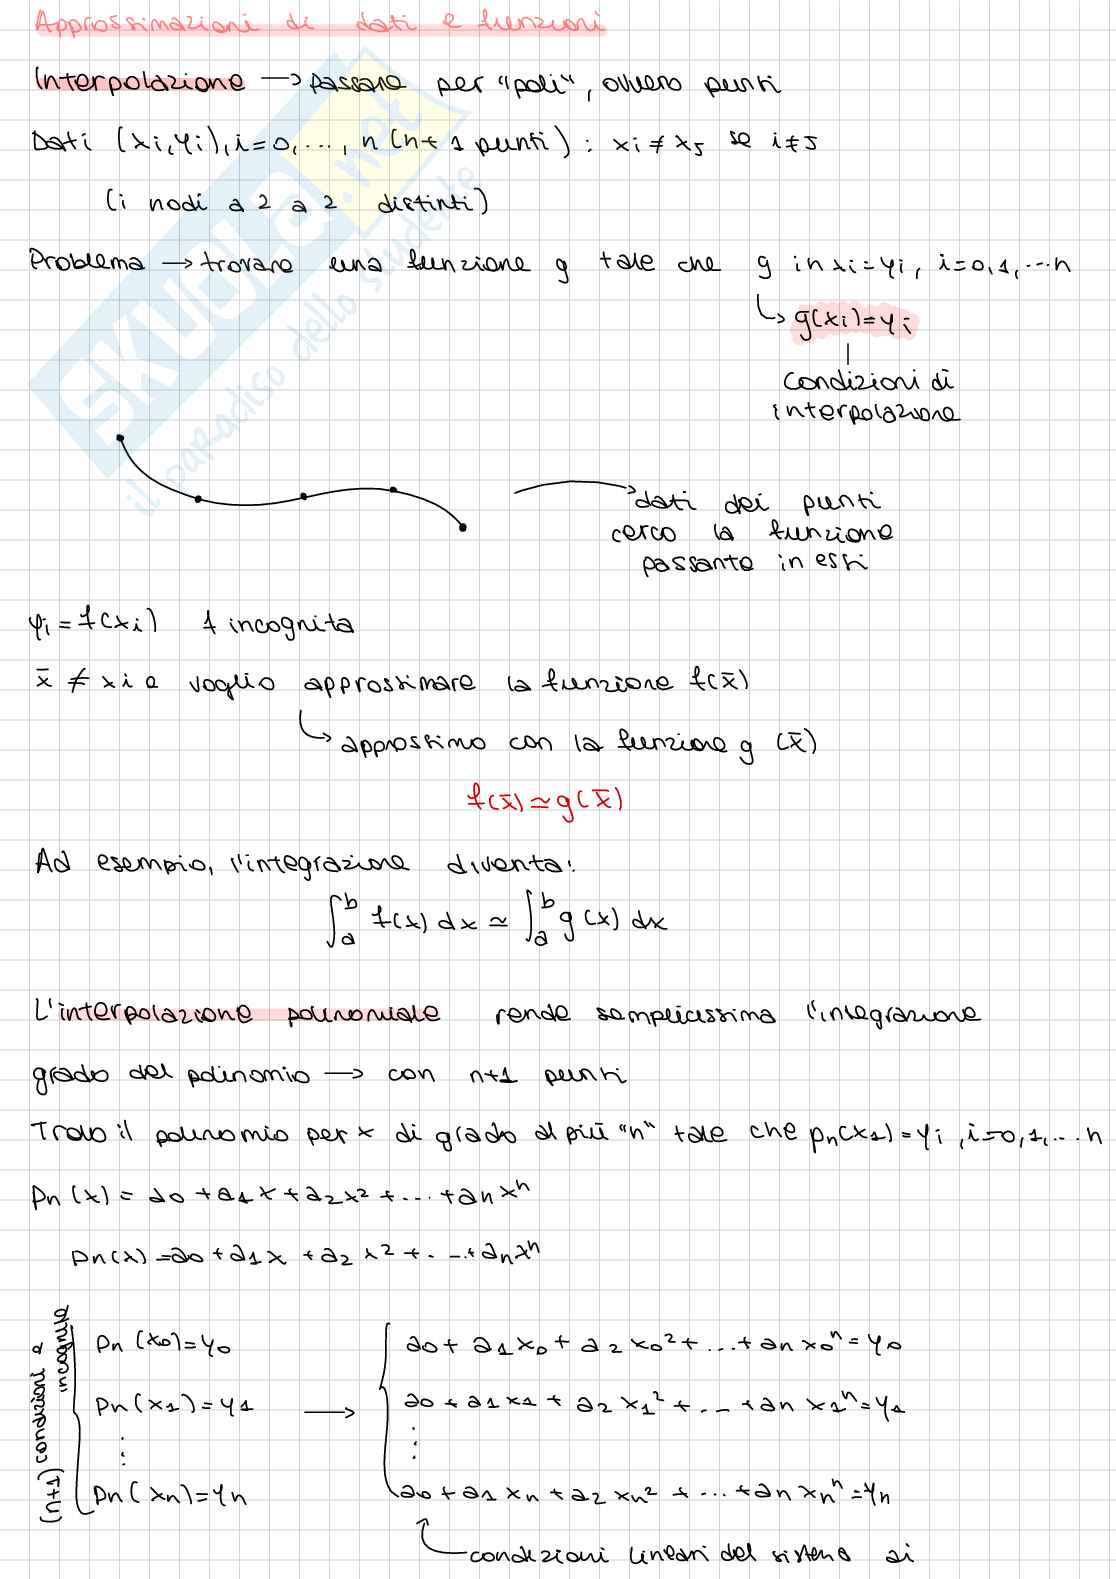 Approssimazioni di dati e funzioni
Interpolazione → passare per "poli", ovvero punti
Dati (xi,yi), i=0,..., n (n+1 punti) : xi ≠ xj se i≠j
(i nodi a 2 a 2 distinti)
Problema → trovare una funzione g tale che g in xi=yi, i=0,1,...n
↳ g(xi)=yi
condizioni di
interpolazione
dati dei punti
cerco la funzione
passante in essi
yi = f(xi) f incognita
x̄ ≠ xi e voglio approssimare la funzione f(x̄)
↳ approssimo con la funzione g (x̄)
f(x̄) ≃ g(x̄)
Ad esempio, l'integrazione diventa:
∫ₐᵇ f(x) dx ≃ ∫ₐᵇ g(x) dx
L'interpolazione polinomiale rende semplicissima l'integrazione
grado del polinomio → con n+1 punti
Trovo il polinomio per x di grado al più "n" tale che pn(x1)=yi, i=0,1,...n
pn(x) = a0 + a1x + a2x² + ... + anxⁿ
pn(x) = a0 + a1x + a2x² + ... + anxⁿ
(n+1) condizioni e
incognite
pn(x0)=y0
pn(x1)=y1
⋮
pn(xn)=yn
→
a0 + a1x0 + a2x0² + ... + anx0ⁿ = y0
a0 + a1x1 + a2x1² + ... + anx1ⁿ = y1
⋮
a0 + a1xn + a2xn² + ... + anxnⁿ = yn
condizioni lineari del sistema ai
SKUOLA.net
il paradiso dello studente